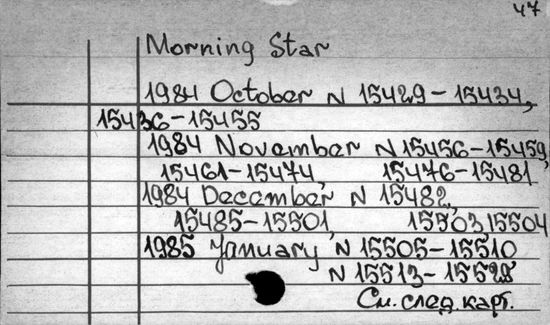 47
Morning Star
1984 October N 15429-15434,
15436-15455
1984 November N 15456-15459,
15461-15474, 15476-15481
1984 December, N 15482,
15485-15501, 15503,15504
1985 January, N 15505-15510
N 15513-15528
См. след. карт.